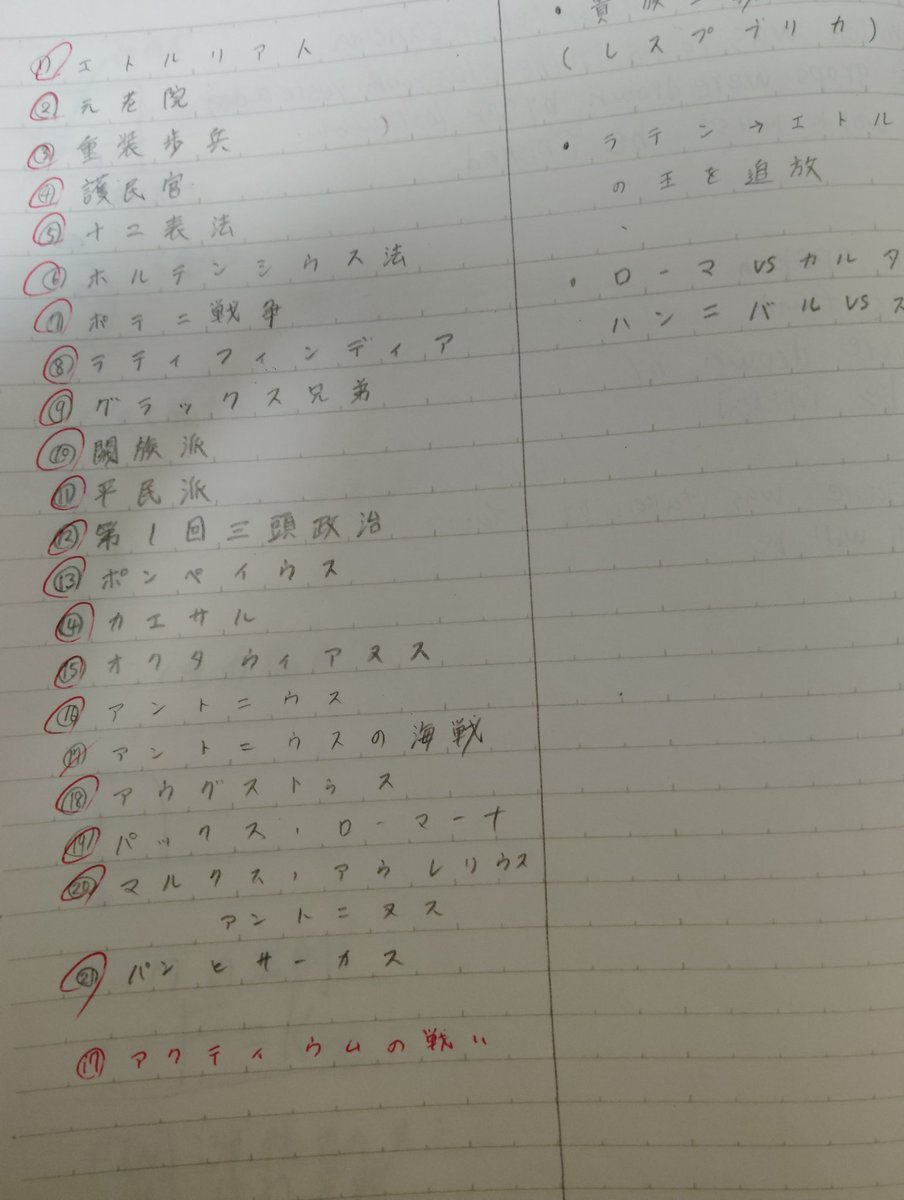 ① エトルリア人
② 元老院
③ 重装歩兵 )
④ 護民官
⑤ 十二表法
⑥ ホルテンシウス法
⑦ ポテニ戦争
⑧ ラティフィンディア
⑨ グラックス兄弟
⑩ 閥族派
⑪ 平民派
⑫ 第1回三頭政治
⑬ ポンペイウス
⑭ カエサル
⑮ オクタウィアヌス
⑯ アントニウス
⑰ アントニウスの海戦
⑱ アウグストゥス
⑲ パックス・ローマーナ
⑳ マルクス・アウレリウス
アントニヌス
㉑ パンとサーカス
⑰ アクティウムの戦い
・貴族
(レスプブリカ)
・ラテン→エトル
の王を追放
・ローマ vs カルタ
ハンニバル vs ス